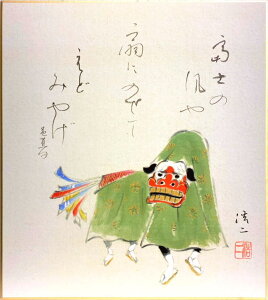 富士の
風や
扇にのせて
えど
みやげ
芭蕉句
浩二